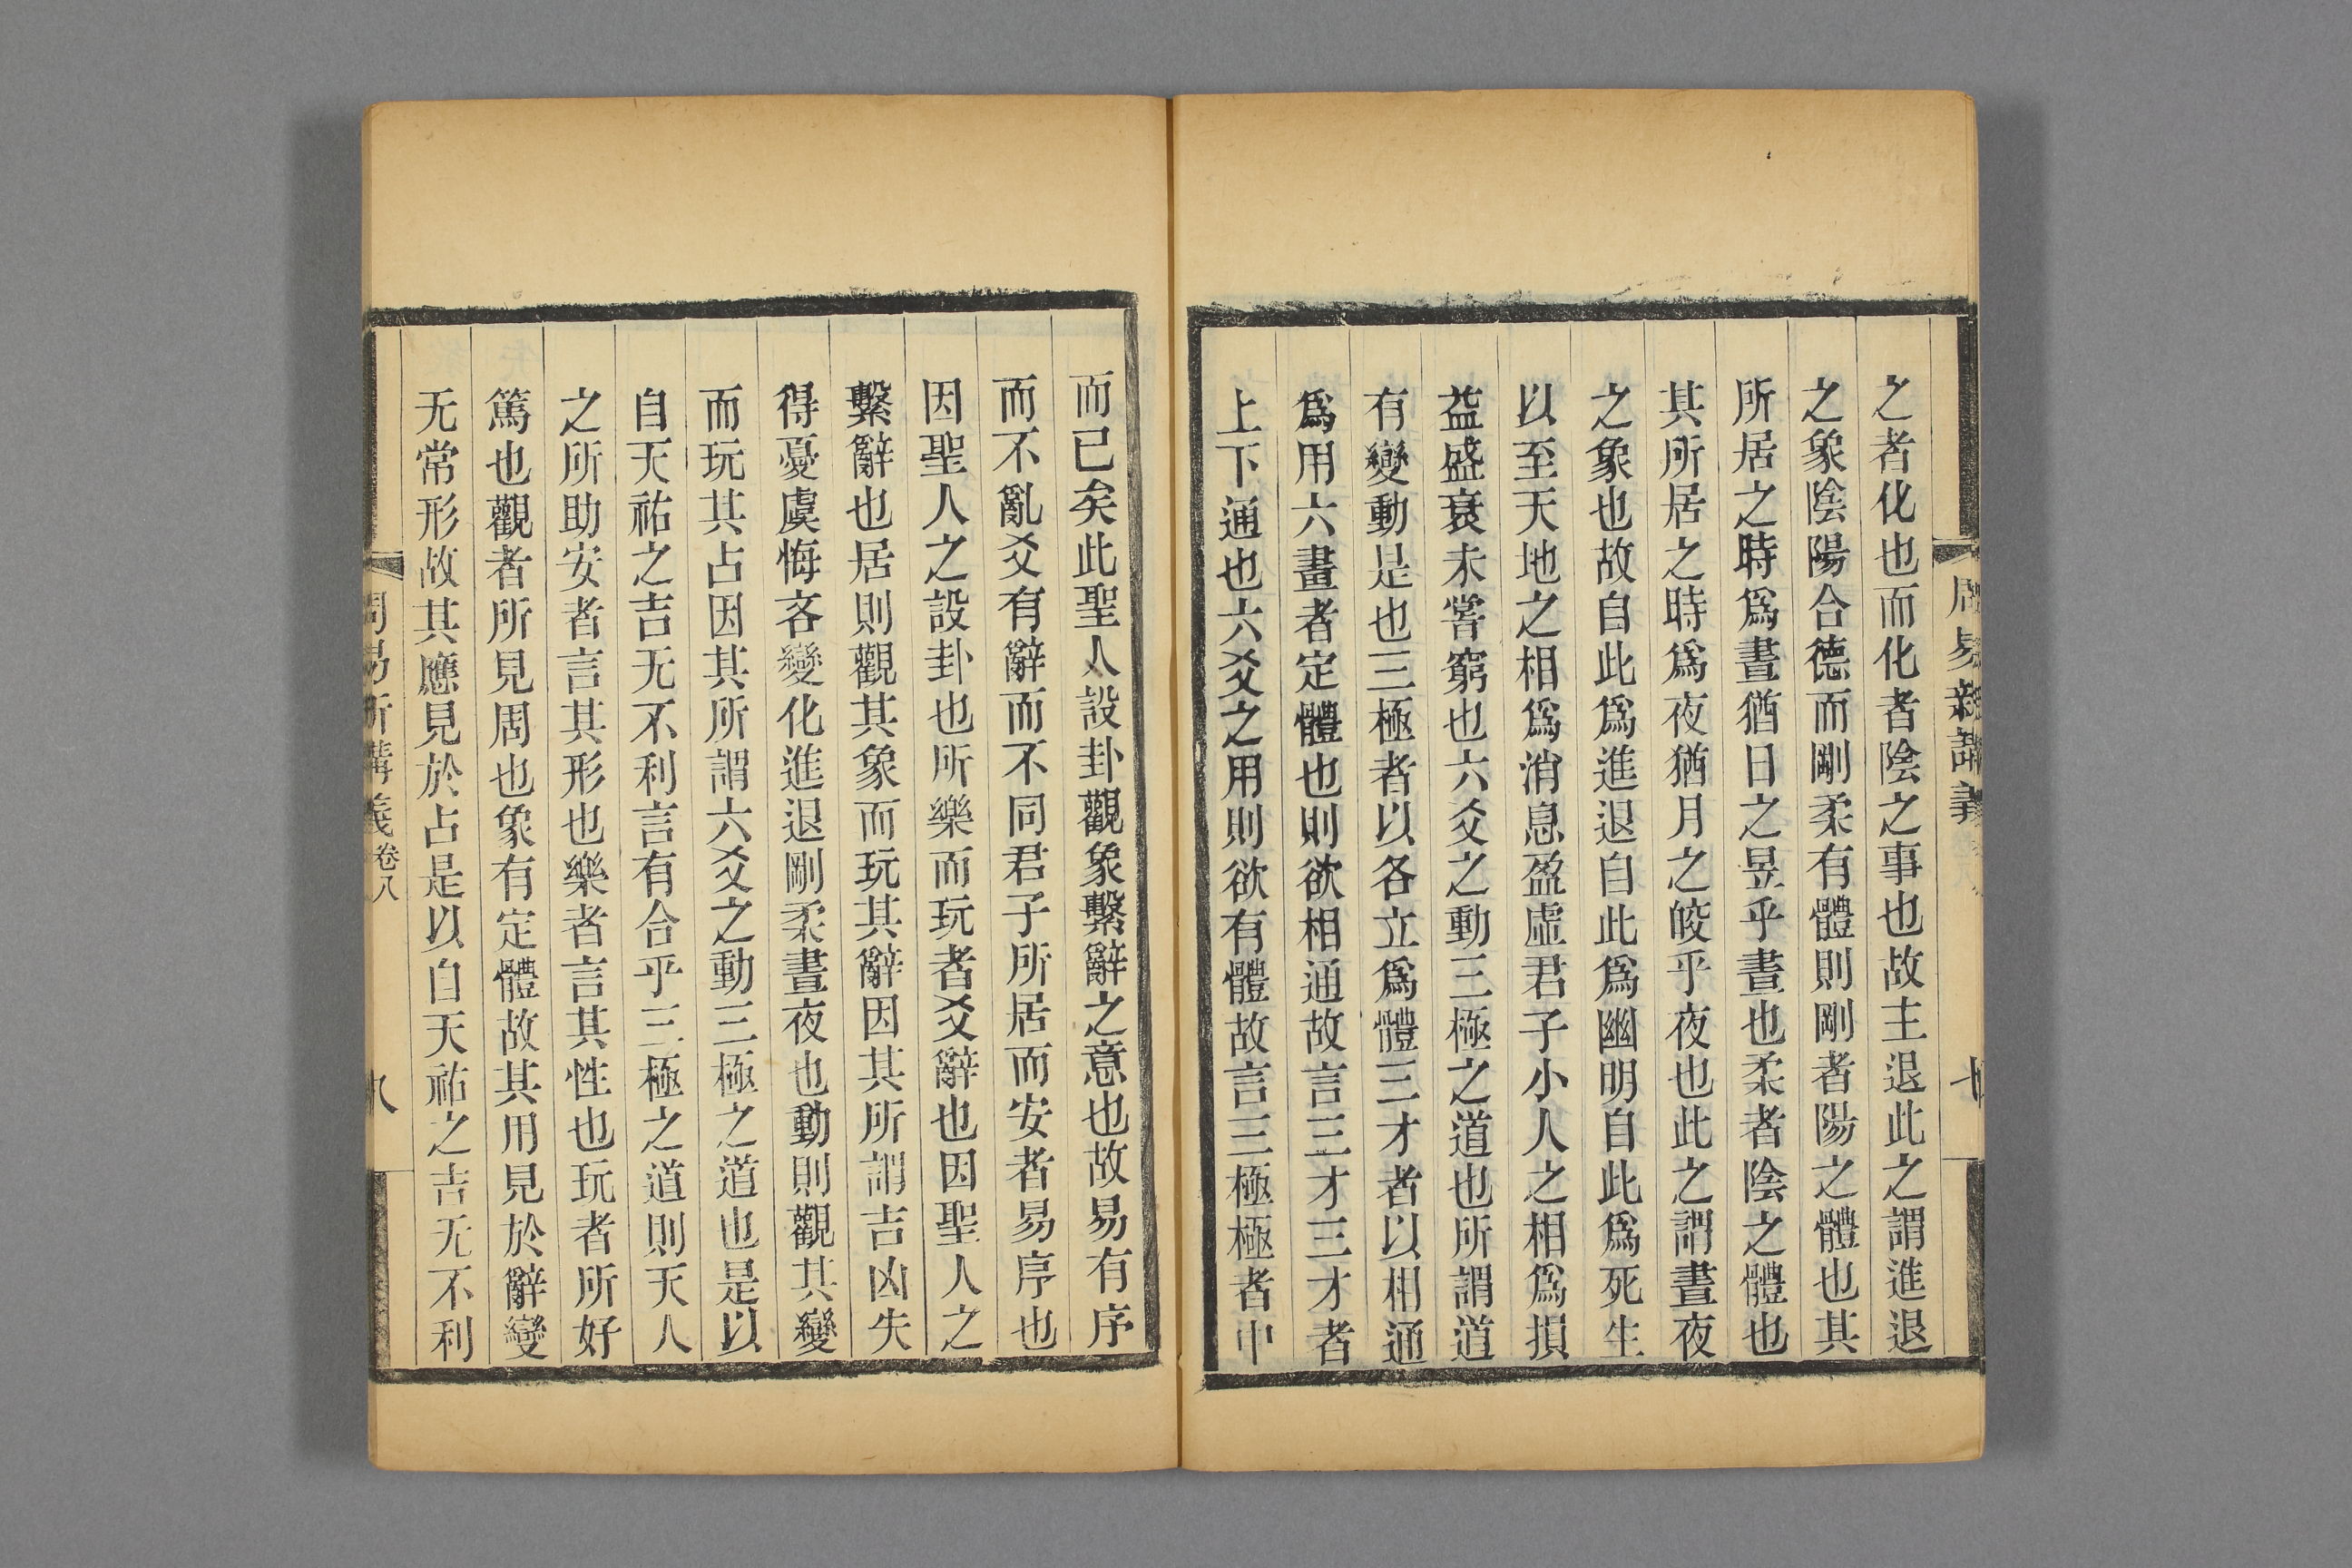 之者化也而化者陰之事也故主退此之謂進退
之象陰陽合德而剛柔有體則剛者陽之體也其
所居之時爲晝猶日之昱乎晝也柔者陰之體也
其所居之時爲夜猶月之皎乎夜也此之謂晝夜
之象也故自此爲進退自此爲幽明自此爲死生
以至天地之相爲消息盈虛君子小人之相爲損
益盛衰未嘗窮也六爻之動三極之道也所謂道
有變動是也三極者以各立爲體三才者以相通
爲用六畫者定體也則欲相通故言三才三才者
上下通也六爻之用則欲有體故言三極極者中
而已矣此聖人設卦觀象繫辭之意也故易有序
而不亂爻有辭而不同君子所居而安者易序也
因聖人之設卦也所樂而玩者爻辭也因聖人之
繫辭也居則觀其象而玩其辭因其所謂吉凶失
得憂虞悔吝變化進退剛柔晝夜也動則觀其變
而玩其占因其所謂六爻之動三極之道也是以
自天祐之吉无不利言有合乎三極之道則天人
之所助安者言其形也樂者言其性也玩者所好
篤也觀者所見周也象有定體故其用見於辭變
无常形故其應見於占是以自天祐之吉无不利
周易新講義卷八
八